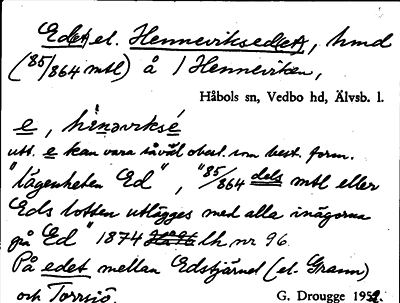 Ed(et) el. Henneviksed(et), hmd
(85/864 mtl) å 1 Henneviken,
Håbols sn, Vedbo hd, Älvsb. l.
e, hènəviksé
utt. e kan vara såväl obest. som best. form.
"lägenheten Ed", "85/864 dels mtl eller
Eds lotten utlägges med alla inägorna
på Ed" 1874 lh nr 96.
På edet mellan Edstjärnet (el. Grann)
och Torrsjö.
G. Drougge 1952.